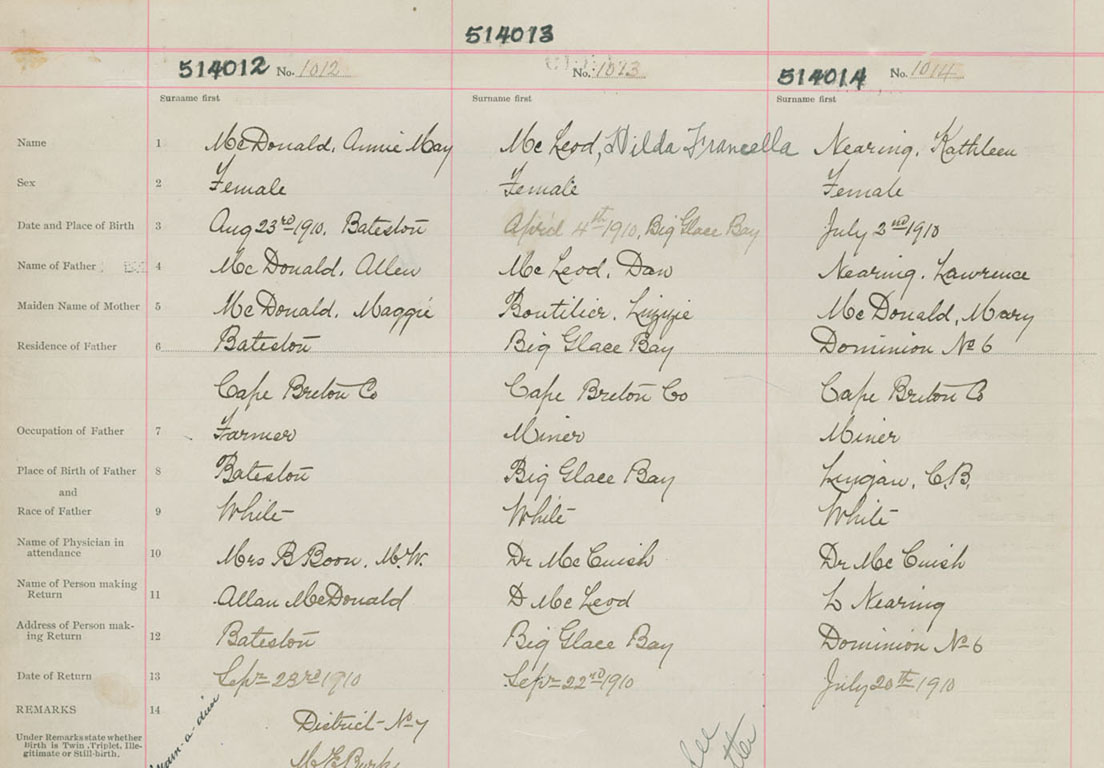 514013
514012 No. 1012 No. 1013 514014 No. 1014
Surname first Surname first Surname first
Name 1 McDonald, Annie May Mc Leod, Hilda Francella Nearing, Kathleen
Sex 2 Female Female Female
Date and Place of Birth 3 Aug 23rd 1910, Bateston April 4th 1910, Big Glace Bay July 2nd 1910
Name of Father 4 Mc Donald, Allen Mc Leod, Dan Nearing, Lawrence
Maiden Name of Mother 5 McDonald, Maggie Boutilier, Lizzie McDonald, Mary
Residence of Father 6 Bateston Big Glace Bay Dominion No 6
Cape Breton Co Cape Breton Co Cape Breton Co
Occupation of Father 7 Farmer Miner Miner
Place of Birth of Father 8 Bateston Big Glace Bay Lingan, C.B.
and
Race of Father 9 White White White
Name of Physician in
attendance 10 Mrs B Boon, M.W. Dr McCuish Dr McCuish
Name of Person making
Return 11 Allan McDonald D McLeod L Nearing
Address of Person mak-
ing Return 12 Bateston Big Glace Bay Dominion No 6
Date of Return 13 Sepr 23rd 1910 Sepr 22nd 1910 July 20th 1910
REMARKS 14 District No 7
Under Remarks state whether
Birth is Twin, Triplet, Ille-
gitimate or Still-birth.
See